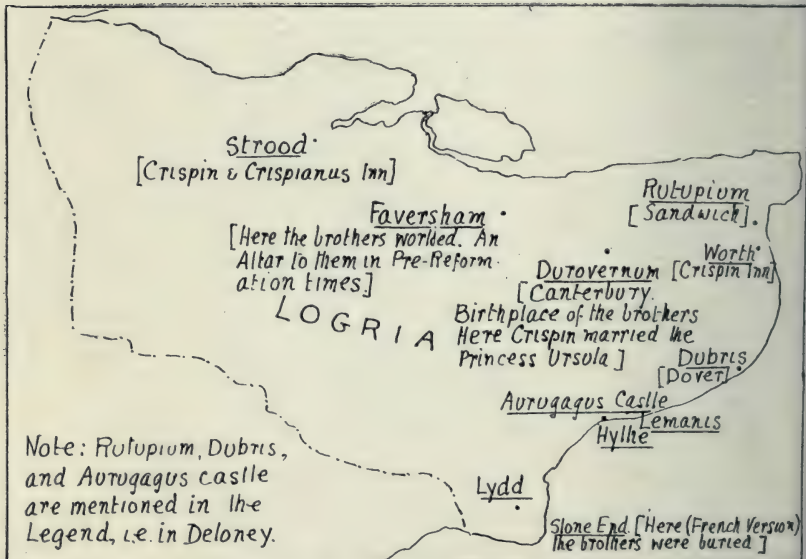 Strood
[Crispin & Crispianus Inn]
Faversham
[Here the brothers worked. An
Altar to them in Pre-Reform-
ation times.]
LOGRIA
Rutupium
[Sandwich]
Worth
[Crispin Inn]
Durovernum
[Canterbury.
Birthplace of the brothers
Here Crispin married the
Princess Ursula]
Dubris
[Dover]
Aurugagus Castle
Lemanis
Hythe
Lydd
Stone End. [Here (French Version)
the brothers were buried]
Note: Rutupium, Dubris,
and Aurugagus castle
are mentioned in the
Legend, i.e. in Deloney.